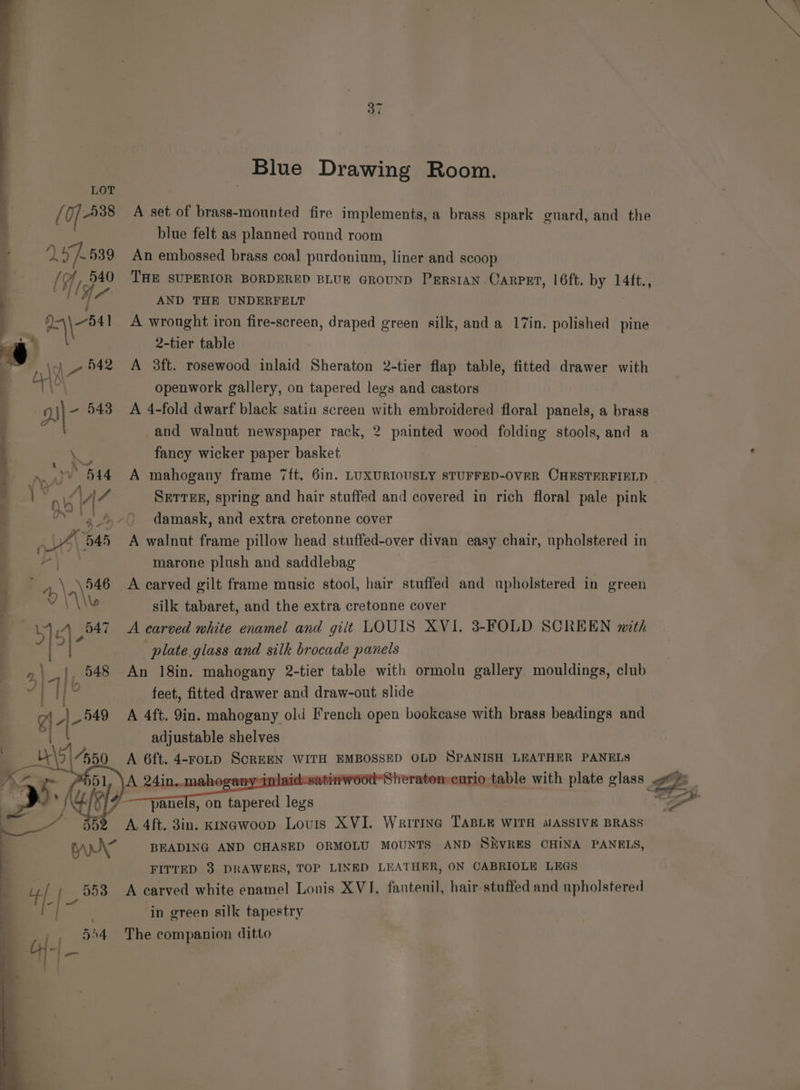 37
Blue Drawing Room.
LOT
538 A set of brass-mounted fire implements, a brass spark guard, and the
blue felt as planned round room
539 An embossed brass coal purdonium, liner and scoop
540 THE SUPERIOR BORDERED BLUE GROUND PERSIAN CARPET, 16ft. by 14ft.,
AND THE UNDERFELT
541 A wrought iron fire-screen, draped green silk, and a 17in. polished pine
2-tier table
542 A 3ft. rosewood inlaid Sheraton 2-tier flap table, fitted drawer with
openwork gallery, on tapered legs and castors
543 A 4-fold dwarf black satin screen with embroidered floral panels, a brass
and walnut newspaper rack, 2 painted wood folding stools, and a
fancy wicker paper basket
544 A mahogany frame 7ft. 6in. LUXURIOUSLY STUFFED-OVER CHESTERFIELD
SETTEE, spring and hair stuffed and covered in rich floral pale pink
damask, and extra cretonne cover
545 A walnut frame pillow head stuffed-over divan easy chair, upholstered in
marone plush and saddlebag
546 A carved gilt frame music stool, hair stuffed and upholstered in green
silk tabaret, and the extra cretonne cover
547 A carved white enamel and gilt LOUIS XVI. 3-FOLD SCREEN with
plate glass and silk brocade panels
548 An 18in. mahogany 2-tier table with ormolu gallery mouldings, club
feet, fitted drawer and draw-out slide
549 A 4ft. 9in. mahogany old French open bookcase with brass beadings and
adjustable shelves
550 A 6ft. 4-FOLD SCREEN WITH EMBOSSED OLD SPANISH LEATHER PANELS
551 A 24in. mahogany inlaid satinwood Sheraton curio table with plate glass
panels, on tapered legs
552 A 4ft. 3in. KINGWOOD LOUIS XVI. WRITING TABLE WITH MASSIVE BRASS
BEADING AND CHASED ORMOLU MOUNTS AND SÈVRES CHINA PANELS,
FITTED 3 DRAWERS, TOP LINED LEATHER, ON CABRIOLE LEGS
553 A carved white enamel Louis XVI. fauteuil, hair stuffed and upholstered
in green silk tapestry
554 The companion ditto